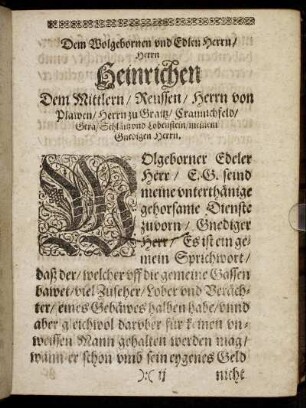 Dem Wolgebornen vnd Edlen Herrn/
Herrn
Heinrichen
Dem Mittlern/ Reussen/ Herrn von
Plawen/ Herrn zu Graitz/ Crannichfeld/
Gera/ Schlaitz vnd Lobenstein/ meinem
Gnedigen Herrn.
WOlgeborner Edeler
Herr/ E. G. seind
meine vnterthänige
gehorsame Dienste
zuvorn/ Gnediger
Herr/ Es ist ein ge-
mein Sprichwort/
daß der/ welcher vff die gemeine Gassen
bawet/ viel Zuseher/ Lober vnd Veräch-
ter/ eines Gebäwes halben habe/ vnnd
aber gleichwol darvber für keinen vn-
weissen Mann gehalten werden mag/
wann er schon vmb sein eygenes Geld
):( ij
nicht